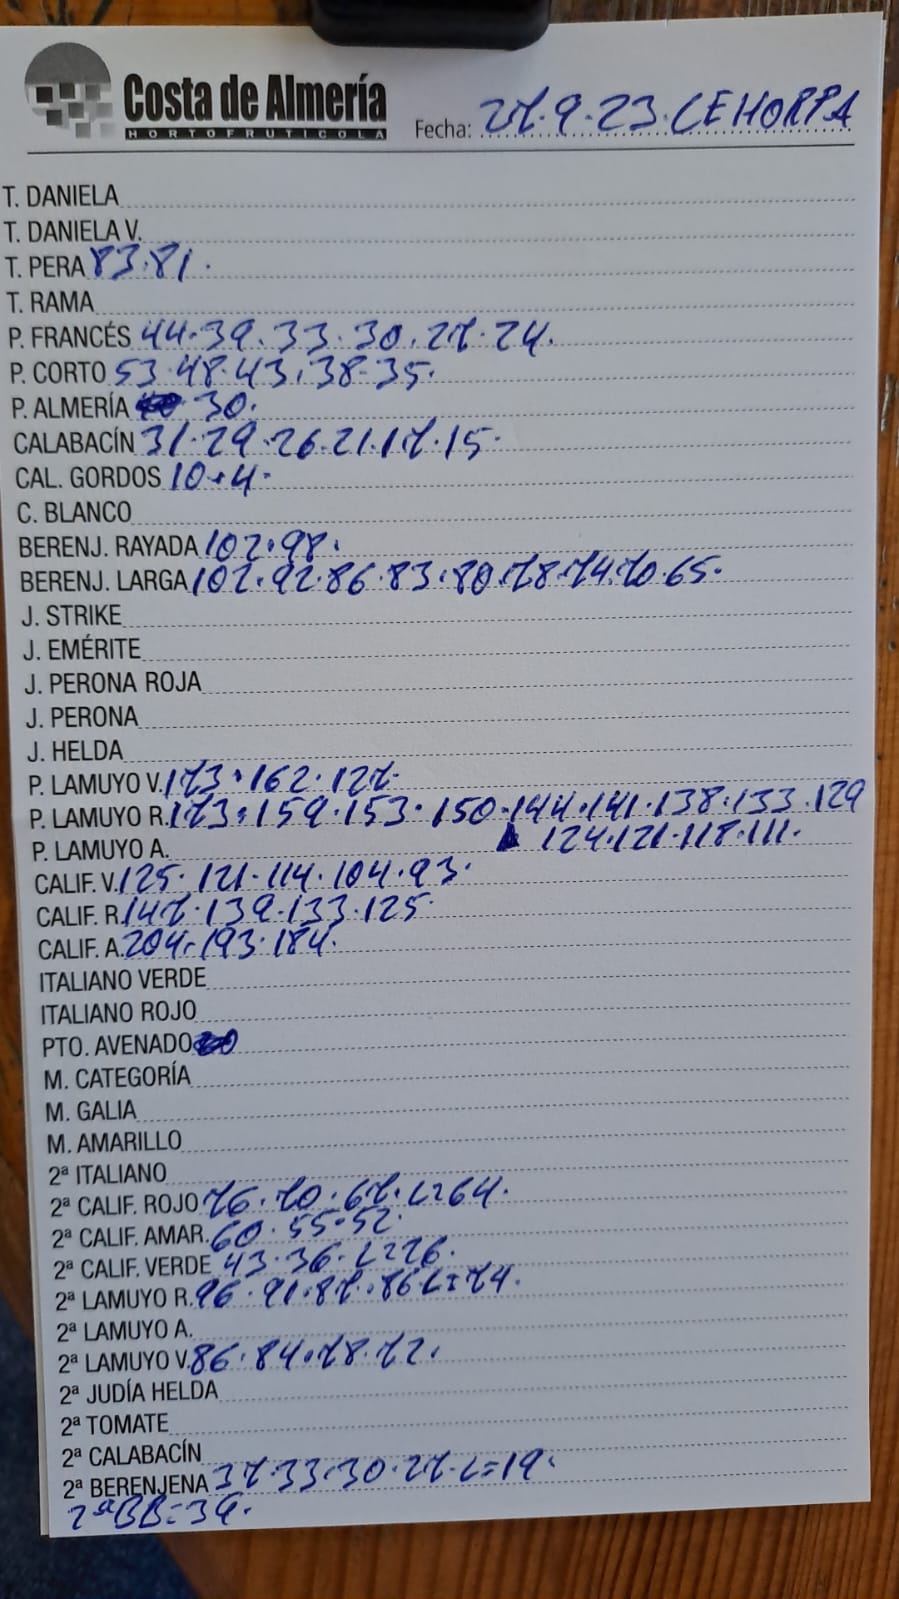 Costa de Almería
HORTOFRUTICOLA
Fecha: 27.9.23. CEHORPA
T. DANIELA
T. DANIELA V.
T. PERA 83.81.
T. RAMA
P. FRANCÉS 44.39.33.30.27.24.
P. CORTO 53.48.43.38.35.
P. ALMERÍA 30.
CALABACÍN 31.29.26.21.17.15.
CAL. GORDOS 10+4.
C. BLANCO
BERENJ. RAYADA 102.98.
BERENJ. LARGA 102.92.86.83.80.78.74.70.65.
J. STRIKE
J. EMÉRITE
J. PERONA ROJA
J. PERONA
J. HELDA
P. LAMUYO V. 173.162.127.
P. LAMUYO R. 173.159.153.150.144.141.138.133.129
P. LAMUYO A. 124.121.118.111.
CALIF. V. 125.121.114.104.93.
CALIF. R. 147.139.133.125.
CALIF. A. 204.193.184.
ITALIANO VERDE
ITALIANO ROJO
PTO. AVENADO
M. CATEGORÍA
M. GALIA
M. AMARILLO
2ª ITALIANO
2ª CALIF. ROJO 76.70.67.L=64.
2ª CALIF. AMAR. 60.55.52.
2ª CALIF. VERDE 43.36.L=26.
2ª LAMUYO R. 96.91.87.86 L=74.
2ª LAMUYO A.
2ª LAMUYO V. 86.84.78.72.
2ª JUDÍA HELDA
2ª TOMATE
2ª CALABACÍN
2ª BERENJENA 37.33.30.27.L=19.
2ªBB=34.